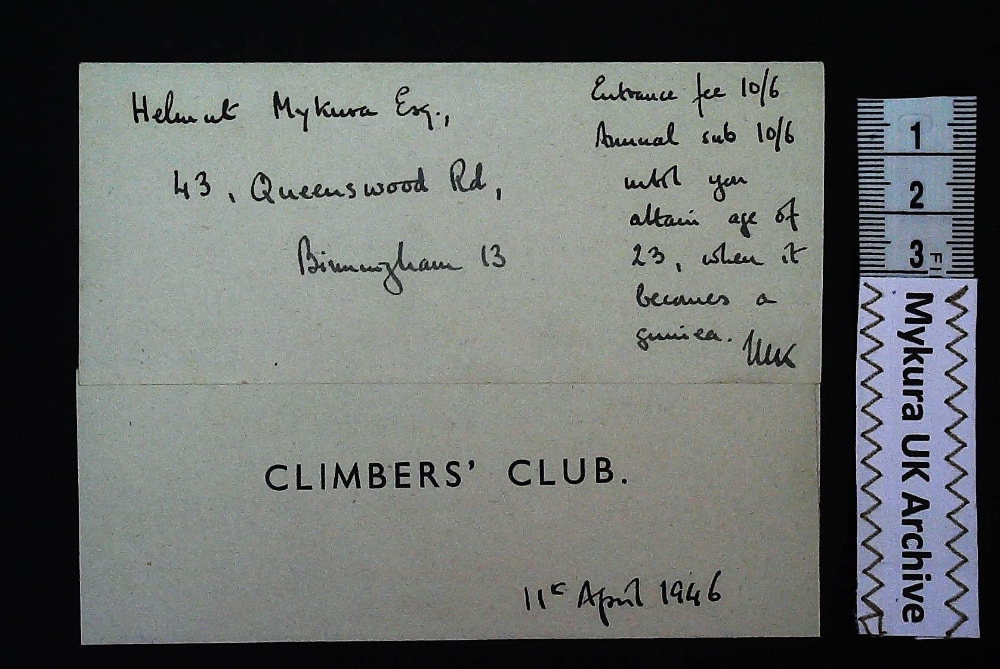 Helmut Mykura Esq.,
43, Queenswood Rd,
Birmingham 13
Entrance fee 10/6
Annual sub 10/6
until you
attain age of
23, when it
becomes a
guinea.
CLIMBERS' CLUB.
11th April 1946
1
2
3
Mykura UK Archive